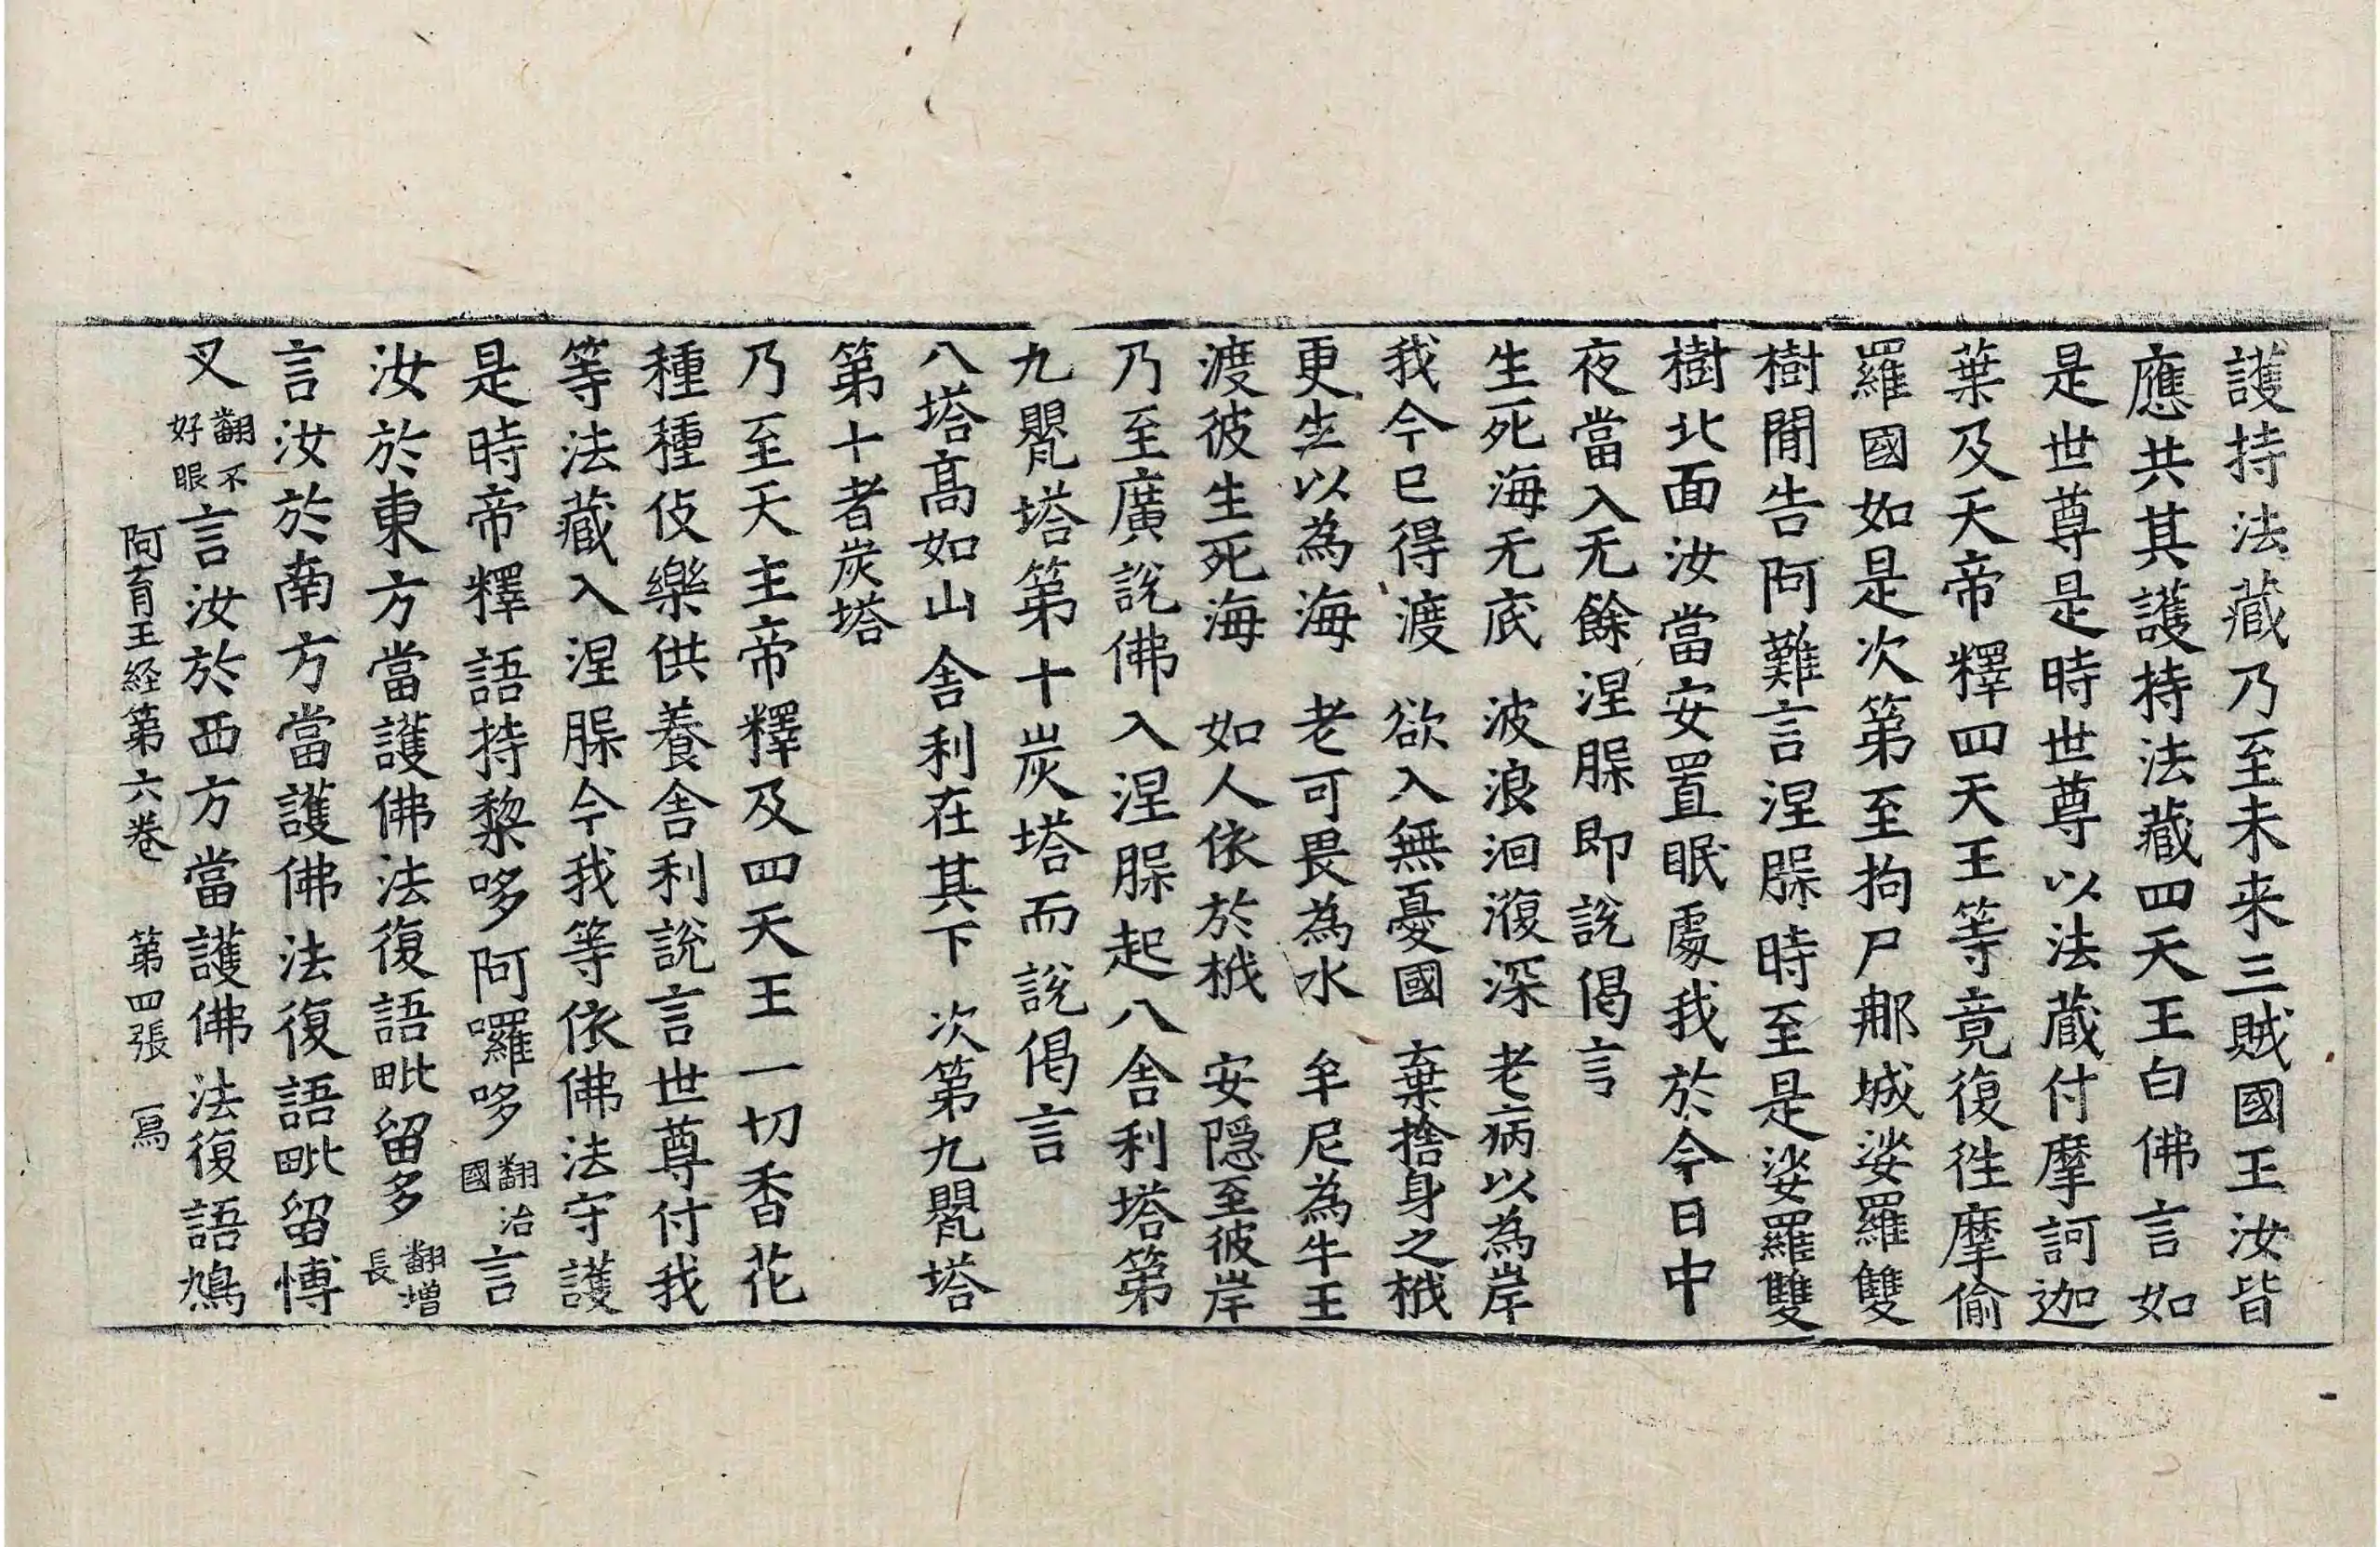 護持法藏乃至未来三賊國王汝皆
應共其護持法藏四天王白佛言如
是世尊是時世尊以法蔵付摩訶迦
葉及天帝釋四天王等竟復徃摩偷
羅國如是次第至拘尸那城娑羅雙
樹間告阿難言涅槃時至是娑羅雙
樹北面汝當安置眠處我於今日中
夜當入无餘涅槃即說偈言
生死海无底　波浪洄澓深　老病以為岸
我今已得渡　欲入無憂國　棄捨身之栰
更生以為海　老可畏為水　牟尼為牛王
渡彼生死海　如人依於栰　安隱至彼岸
乃至廣說佛入涅槃起八舍利塔第
九甖塔第十炭塔而說偈言
八塔髙如山　舍利在其下　次第九甖塔
第十者炭塔
乃至天主帝釋及四天王一切香花
種種伎樂供養舍利說言世尊付我
等法藏入涅槃今我等依佛法守護
是時帝釋語持黎哆阿囉哆翻治國言
汝於東方當護佛法復語毗留多翻增長
言汝於南方當護佛法復語毗留愽
叉翻不好眼言汝於西方當護佛法復語鳩
阿育王経第六卷　第四張　寫